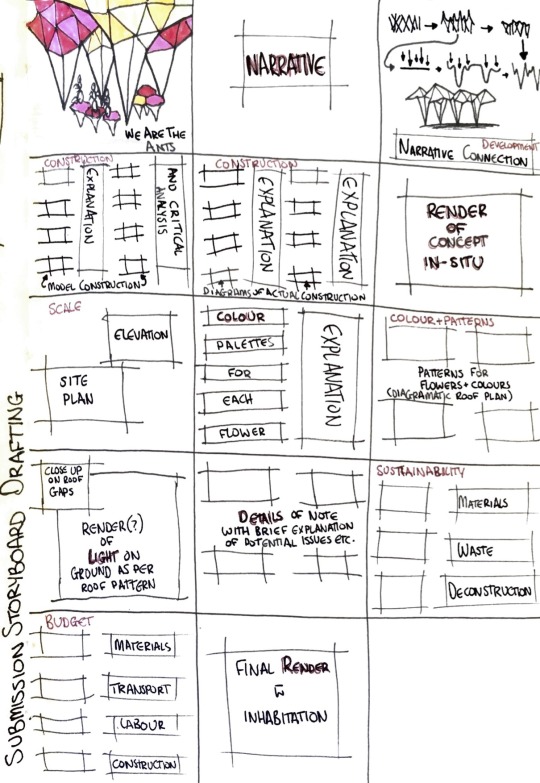 SUBMISSION STORYBOARD DRAFTING
WE ARE THE
ANTS
NARRATIVE
DEVELOPMENT
NARRATIVE CONNECTION
CONSTRUCTION
EXPLANATION
AND CRITICAL
ANALYSIS
MODEL CONSTRUCTION
CONSTRUCTION
EXPLANATION
EXPLANATION
DIAGRAMS OF ACTUAL CONSTRUCTION
RENDER
OF
CONCEPT
IN-SITU
SCALE
ELEVATION
SITE
PLAN
COLOUR
PALETTES
FOR
EACH
FLOWER
EXPLANATION
COLOUR+PATTERNS
PATTERNS FOR
FLOWERS+COLOURS
(DIAGRAMATIC ROOF PLAN)
CLOSE UP
ON ROOF
GAPS
RENDER(?)
OF
LIGHT ON
GROUND AS PER
ROOF PATTERN
DETAILS OF NOTE
WITH BRIEF EXPLANATION
OF POTENTIAL ISSUES ETC.
SUSTAINABILITY
MATERIALS
WASTE
DECONSTRUCTION
BUDGET
MATERIALS
TRANSPORT
LABOUR
CONSTRUCTION
FINAL RENDER
INHABITATION